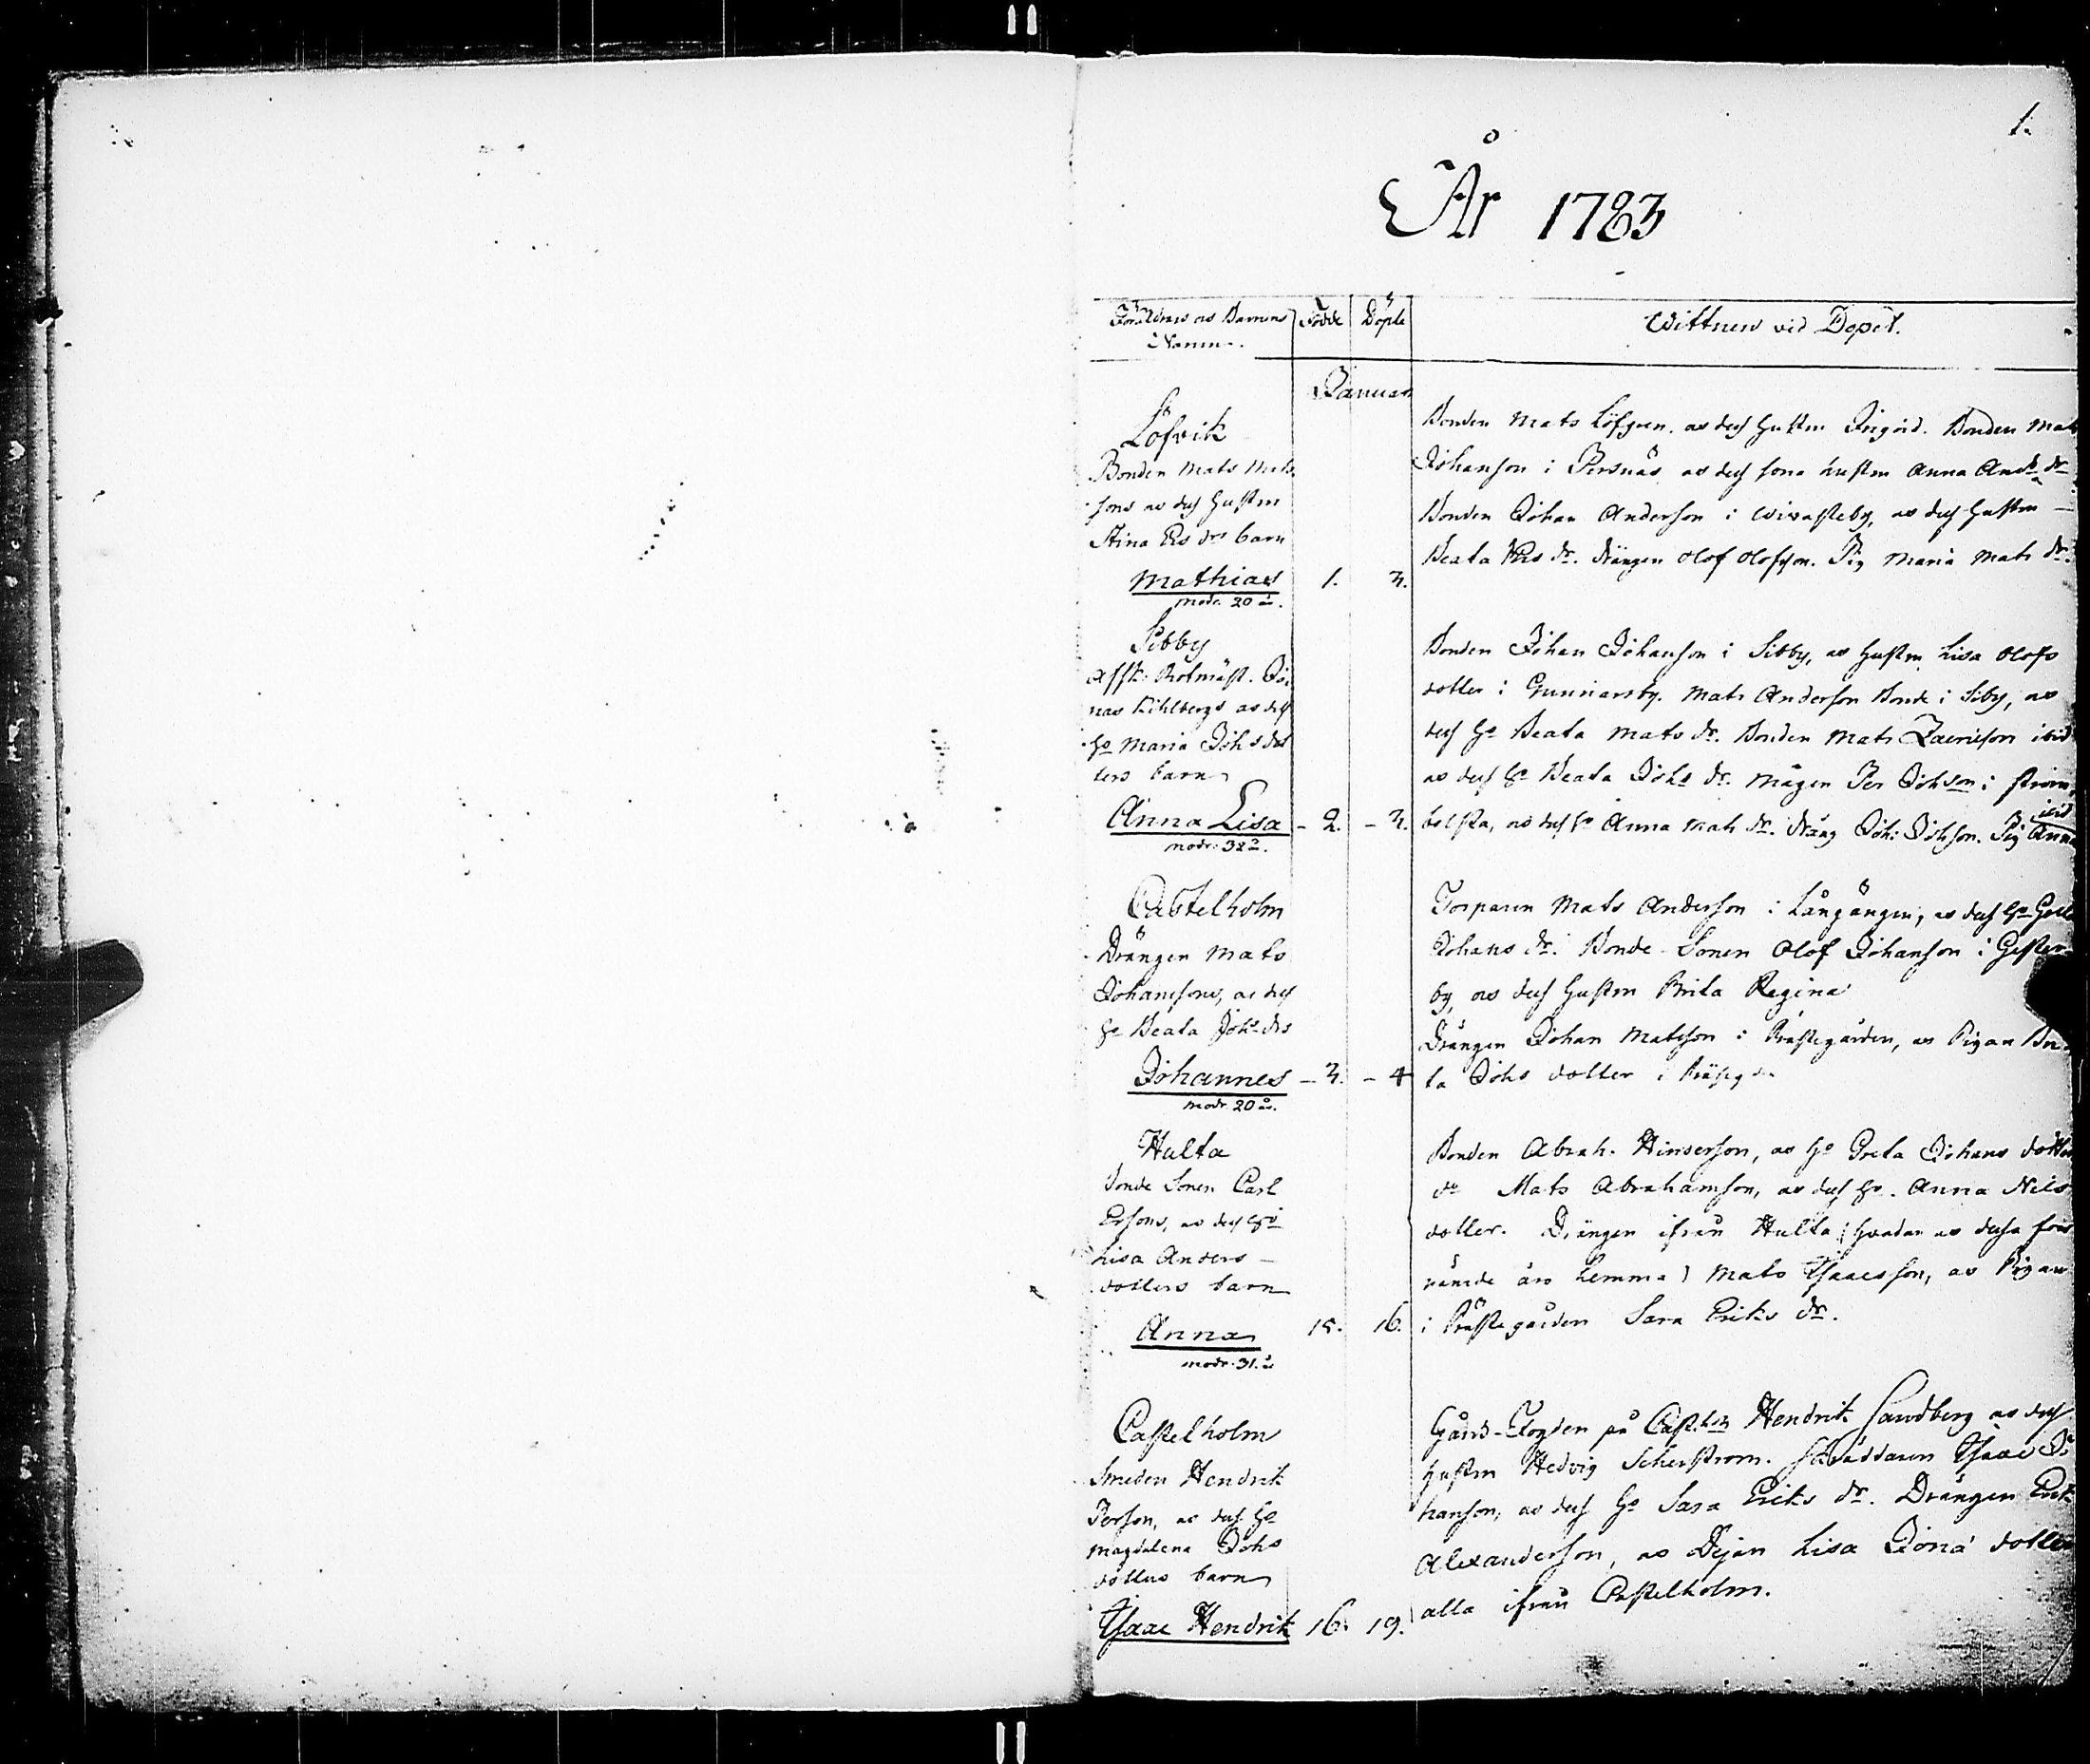 1.
År 1783
Föräldrars as Barnens Födde Döpte Wittnen vid Dopet.
Namn.
Januari
Löfvik
Bonden Mats Mats
sons as dess Hustru
Stina Ers drs barn
Mathias 1. 3.
modr. 20 år.
Bonden Mats Löfgren. as dess Hustru Ingerd. Bonden Mats
Johanson i Persnäs as dess sons hustru Anna And. dr
Bonden Johan Anderson i Wivasteby, as dess Hustru
Beata Ers dr. Drängen Olof Olofsson. Pig Maria Mats dr.
Sibby
Afsk: Rotmäst. Jo
nas Kihlbergs as dess
Ho Maria Johs dot
ters barn
Anna Lisa - 2. - 3.
modr. 38 år.
Bonden Johan Johanson i Sibby, as Hustru Lisa Olofs
dotter i Gunnarsby. Mats Anderson Bonde i Siby, as
dess Ho Beata Mats dr. Bonden Mats ibid
as dess Ho Beata Johs dr. Mågen Per Johson i Ström
ibid
bolsta, as dess Ho Anna Mats dr. Dräng Joh: Johson. Pig Anna
Castelholm
Drängen Mats
Johansons, as dess
Ho Beata Johs drs
Johannes - 3. - 4
modr. 20 år.
Torparen Mats Anderson i Långängen, as dess Ho
Johans dr. Bonde-Sonen Olof Johanson i Gesterr
by, as dess Hustru Brita Regina
Drängen Johan Matsson i Prästegården, as Pigan Bri
ta Johs dotter i
Hulta
Bonde Sonen Carl
Ersons, as dess Ho
Lisa Anders
dotters barn
Anna 15. 16.
modr. 31. år
Bonden Abrah. Hinderson, as Ho Greta Johans dotter
do Mats Abrahamson, as dess Ho. Anna Nils
dotter. Drängen ifrån Hulta (hvadan as dessa för
nämde äro hemma) Mats Isaacsson, as Pigan
i Prästegården Sara Eriks dr.
Castelholm
Smeden Hendrik
Person, as dess Ho
Magdalena Johs
dotters barn
Isaac Hendrik 16. 19.
Gårds-Fogden på Castholm Hendrik Sandberg as dess
Hustru Hedvig Scherström. Skräddaren Isaac Jo
hanson, as dess Ho Sara Eriks dr. Drängen Erik
Alexanderson, as Dejan Lisa Jona dotter
alla ifrån Castelholm.